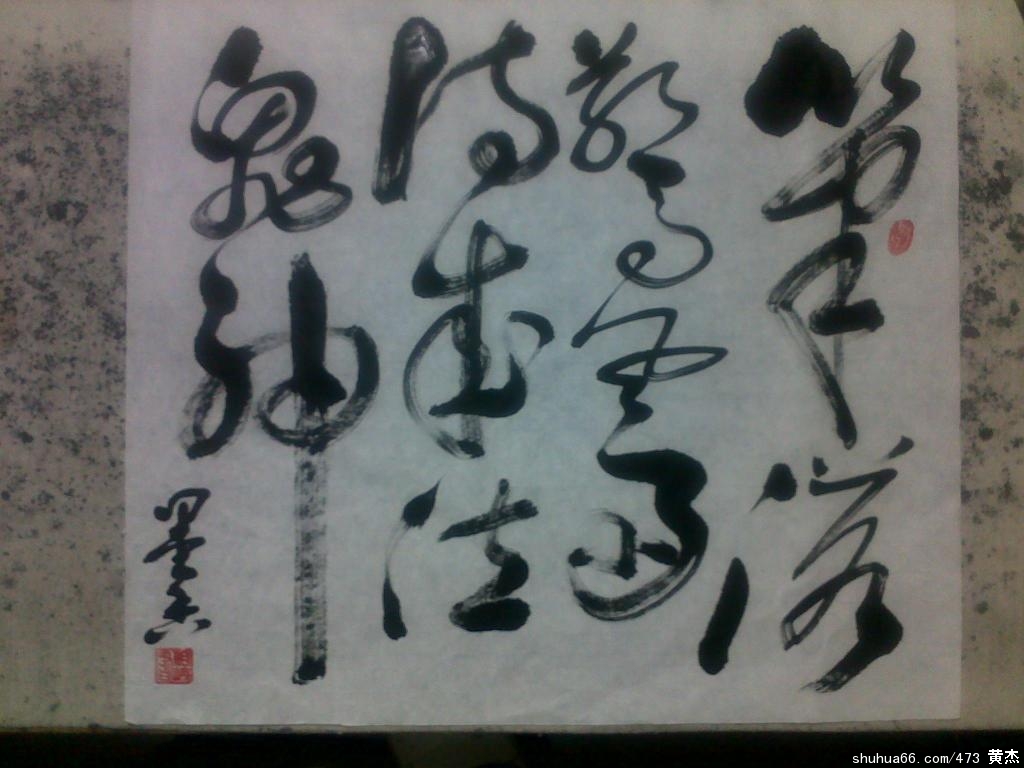 筆落
驚風雨
詩成泣
鬼神
shuhua66.com/473 黄杰